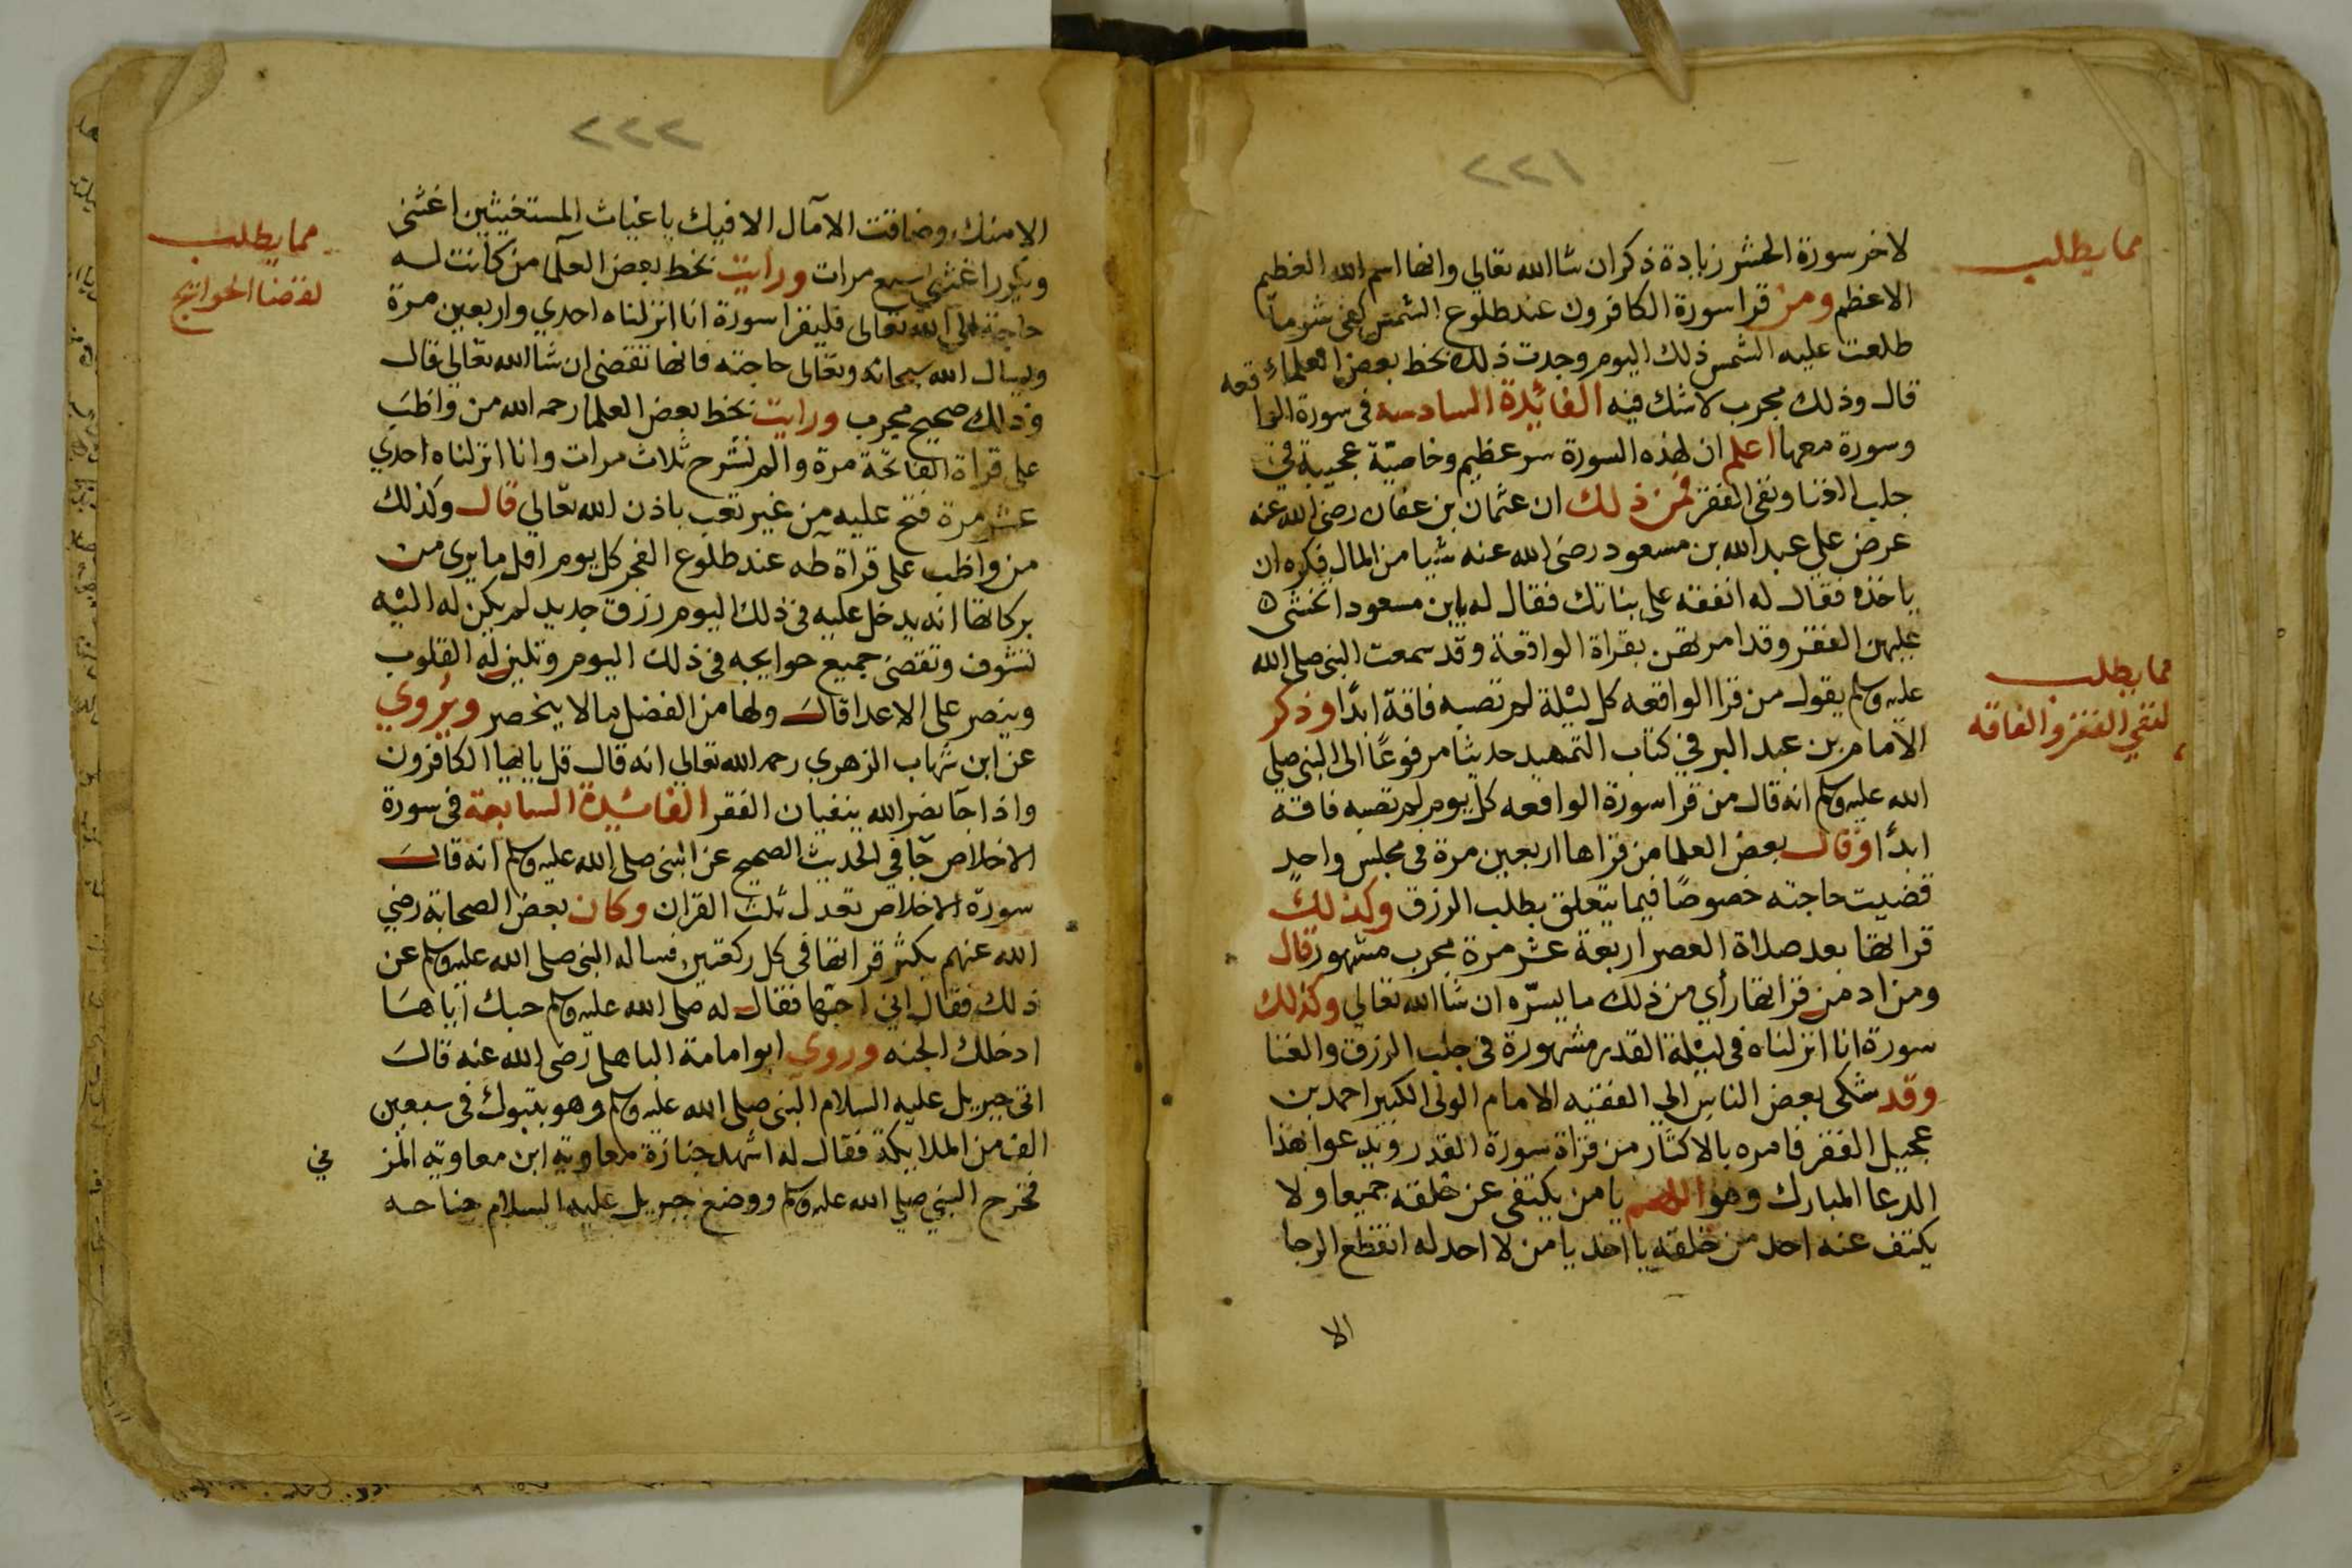 ٢٢١
مما يطلب
لاخر سورة الحشر زيادة ذكر ان شا الله تعالي وانها اسم الله العظيم
الاعظم ومن قرا سورة الكافرون عند طلوع الشمس كفي شر ما
طلعت عليه الشمس ذلك اليوم وجدت ذلك بخط بعض العلماء
قال وذلك مجرب لا شك فيه الفائدة السادسة في سورة الواقعه
وسورة معها اعلم ان لهذه السورة سر عظيم وخاصيّة عجيبة في
جلب الغنا ونفي الفقر فمن ذلك ان عثمان بن عفان رضي الله عنه
عرض علي عبد الله بن مسعود رضي الله عنه شيا من المال فكره ان
ياخذه فقال له انفقه علي بناتك فقال له يابن مسعود اتخشى
عليهن الفقر وقد امرتهن بقراة الواقعة وقد سمعت النبي صلي الله
عليه وسلم يقول من قرا الواقعه كل ليلة لم تصبه فاقة ابدًا وذكر
مما يطلب
لنفي الفقر والفاقه
الامام بن عبد البر في كتاب التمهيد حديثا مرفوعًا الى النبي صلي
الله عليه وسلم انه قال من قرا سورة الواقعه كل يوم لم تصبه فاقة
ابدًا وقال بعض العلما من قراها اربعين مرة في مجلس واحد
قضيت حاجته خصوصًا فيما يتعلق بطلب الرزق وكذلك
قراتها بعد صلاة العصر اربعة عشر مرة مجرب مشهور قال
ومن اد من قراتها رأي من ذلك ما يسرّه ان شا الله تعالي وكذلك
سورة انا انزلناه في ليلة القدر مشهورة في جلب الرزق والغنا
وقد شكى بعض الناس الي الفقيه الامام الولى الكبير احمد بن
عجيل الفقر فامره بالاكثار من قراة سورة القدر ويدعوا بهذا
الدعا المبارك وهو اللهم يا من يكتفى عن خلقه جميعا ولا
يكتف عنه احد من خلقه يا احد يا من لا احد له انقطع الرجا
الا
٢٢٢
الا منك وضاقت الآمال الا فيك يا غياث المستغيثين اغثني
مما يطلب
لقضا الحوائج
ويكرر اغثني سبع مرات ورايت بخط بعض العلما من كانت له
حاجة الي الله تعالى فليقرا سورة انا انزلناه احدي واربعين مرة
ويسال الله سبحانه وتعالى حاجته فانها تقضى ان شا الله تعالي قال
وذلك صحيح مجرب ورايت بخط بعض العلما رحمه الله من واظبَ
على قراة الفاتحة مرة والم نشرح ثلاث مرات وانا انزلناه احدي
عشر مرة فتح عليه من غير تعب باذن الله تعالي قال وكذلك
من واظب على قراة طه عند طلوع الفجر كل يوم اقل ما يرى من
بركاتها انه يدخل عليه في ذلك اليوم رزق جديد لم يكن له اليه
تشوف وتقضى جميع حوايجه في ذلك اليوم وتلين له القلوب
وينصر على الاعدا قال ولها من الفضل ما لا ينحصر ويروي
عن ابن شهاب الزهري رحمه الله تعالي انه قال قل يا ايها الكافرون
واذا جآ نصر الله ينفيان الفقر الفائدة السابعة في سورة
الاخلاص جآ في الحديث الصحيح عن النبي صلي الله عليه وسلم انه قال
سورة الاخلاص تعدل ثلث القران وكان بعض الصحابة رضي
الله عنهم يكثر قراتها في كل ركعتين فساله النبي صلى الله عليه وسلم عن
ذلك فقال اني احبها فقال له صلى الله عليه وسلم حبك اياها
ادخلك الجنه وروي ابو امامة الباهلى رضي الله عنه قال
اتى جبريل عليه السلام النبي صلى الله عليه وسلم وهو بتبوك في سبعين
الف من الملايكة فقال له اشهد جنازة معاوية ابن معاوية المزني
فخرج النبي صلي الله عليه وسلم ووضع جبريل عليه السلام جناحه